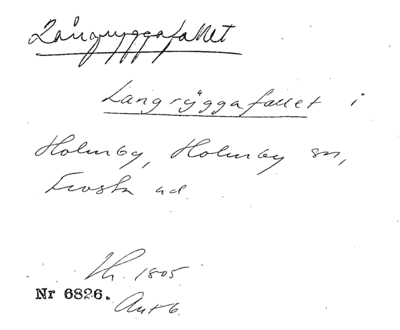 Långryggafallet
Langrÿggafallet i
Holmby, Holmby sn,
Frosta hd.
Nr 6826.